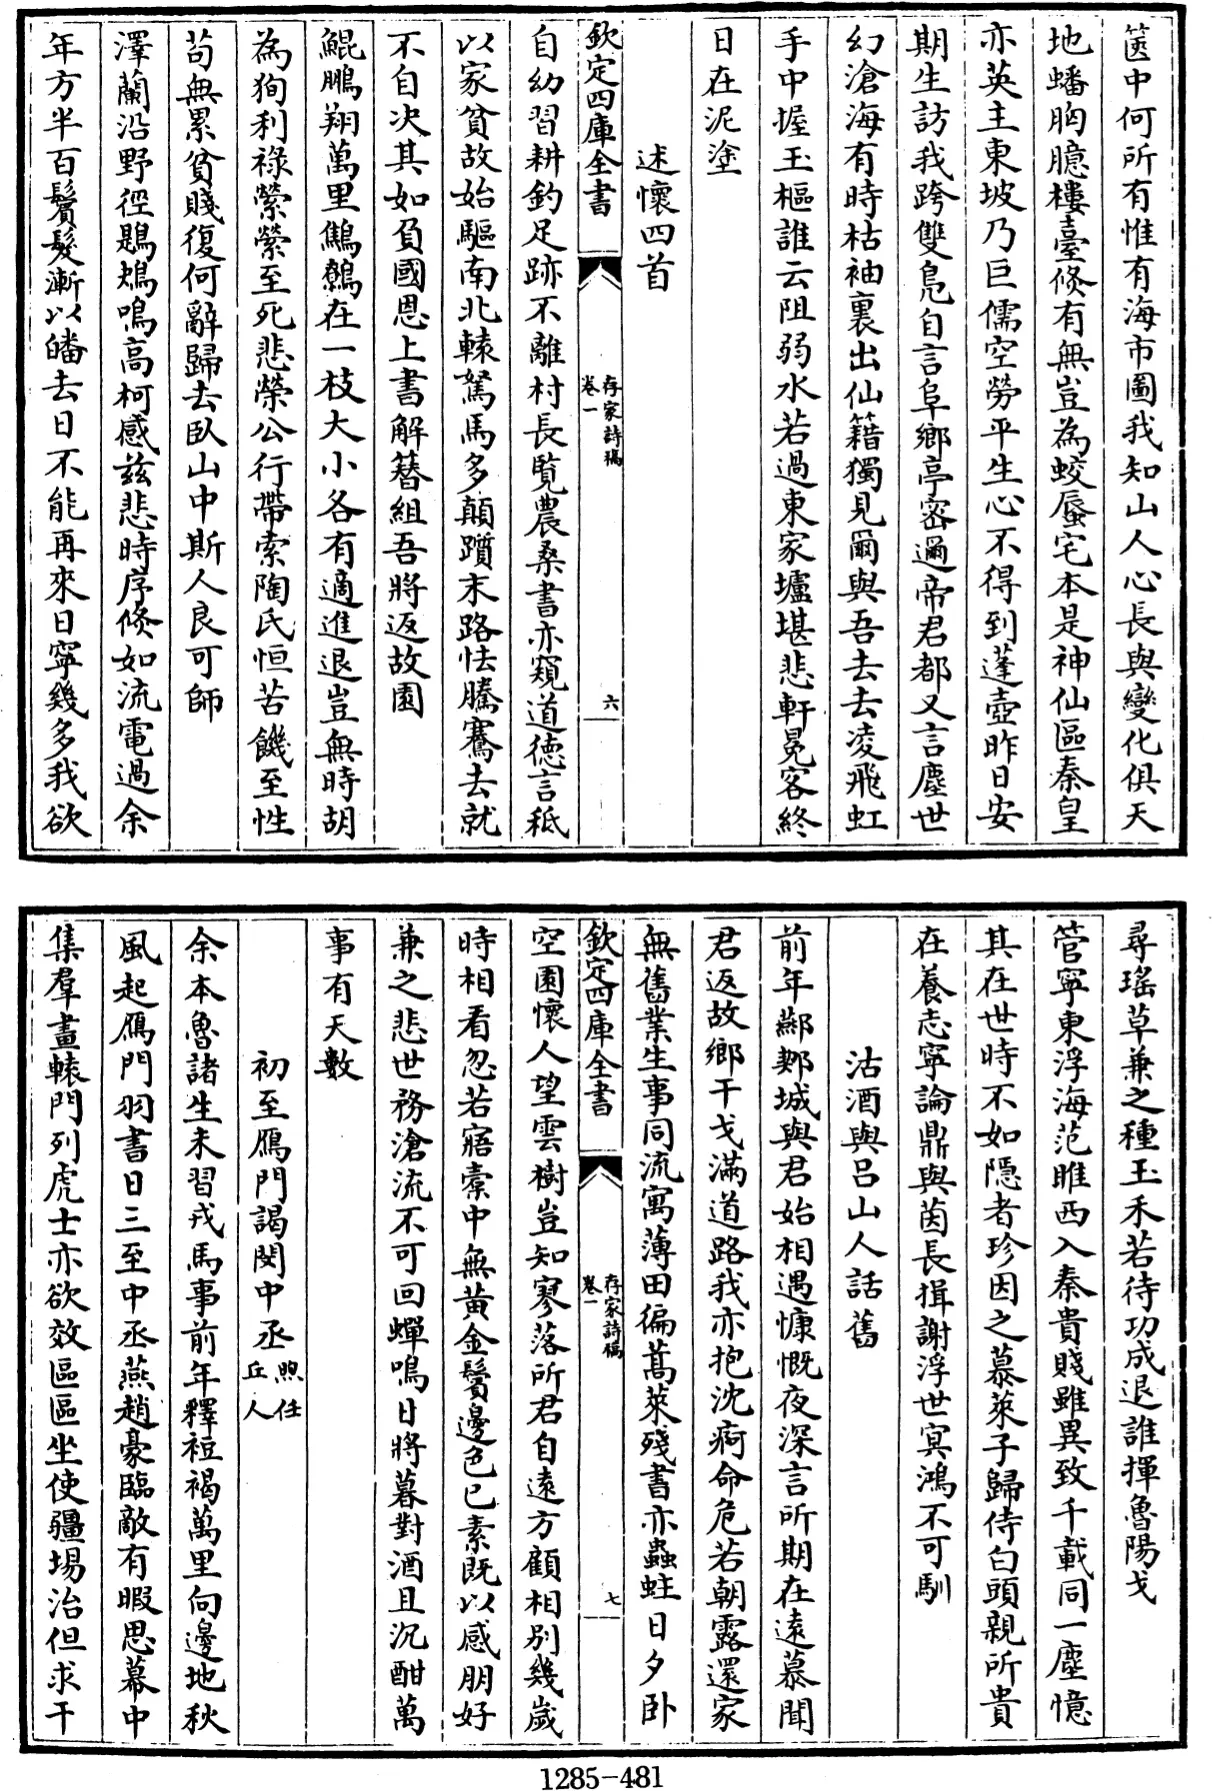 篋中何所有惟有海市圖我知山人心長與變化俱天
地蟠胸臆樓臺倐有無豈為蛟蜃宅本是神仙區秦皇
亦英主東坡乃巨儒空勞平生心不得到蓬壺昨日安
期生訪我跨雙鳬自言阜鄉亭密邇帝君都又言塵世
幻滄海有時枯袖裏出仙籍獨見爾與吾去去凌飛虹
手中握玉樞誰云阻弱水若過東家壚堪悲軒冕客終
日在泥塗
述懷四首
欽定四庫全書
存家詩稿
卷一
六
自幼習耕釣足跡不離村長覧農桑書亦窺道德言秪
以家貧故始驅南北轅駑馬多顛躓末路怯騰騫去就
不自决其如負國恩上書解簪組吾將返故園
鯤鵬翔萬里鷦鷯在一枝大小各有適進退豈無時胡
為狥利祿縈縈至死悲榮公行帶索陶氏恒苦饑至性
茍無累貧賤復何辭歸去臥山中斯人良可師
澤蘭沿野徑鶗鴂鳴高柯感茲悲時序倐如流電過余
年方半百鬢髮漸以皤去日不能再來日寧幾多我欲
尋瑤草兼之種玉禾若待功成退誰揮魯陽戈
管寧東浮海范睢西入秦貴賤雖異致千載同一塵憶
其在世時不如隱者珍因之慕萊子歸侍白頭親所貴
在養志寧論鼎與茵長揖謝浮世冥鴻不可馴
沽酒與呂山人話舊
前年鄴鄴城與君始相遇慷慨夜深言所期在遠慕聞
君返故鄉干戈滿道路我亦抱沈痾命危若朝露還家
無舊業生事同流寓薄田徧蒿萊殘書亦蟲蛀日夕卧
欽定四庫全書
存家詩稿
卷一
七
空園懷人望雲樹豈知寥落所君自遠方顧相別幾歲
時相看忽若寤橐中無黃金鬢邊色已素既以感朋好
兼之悲世務滄流不可回蟬鳴日將暮對酒且沉酣萬
事有天數
初至鴈門謁閔中丞煦任丘人
余本魯諸生未習戎馬事前年釋裋褐萬里向邊地秋
風起鴈門羽書日三至中丞燕趙豪臨敵有暇思幕中
集羣畫轅門列虎士亦欲效區區坐使疆埸治但求干
1285-481